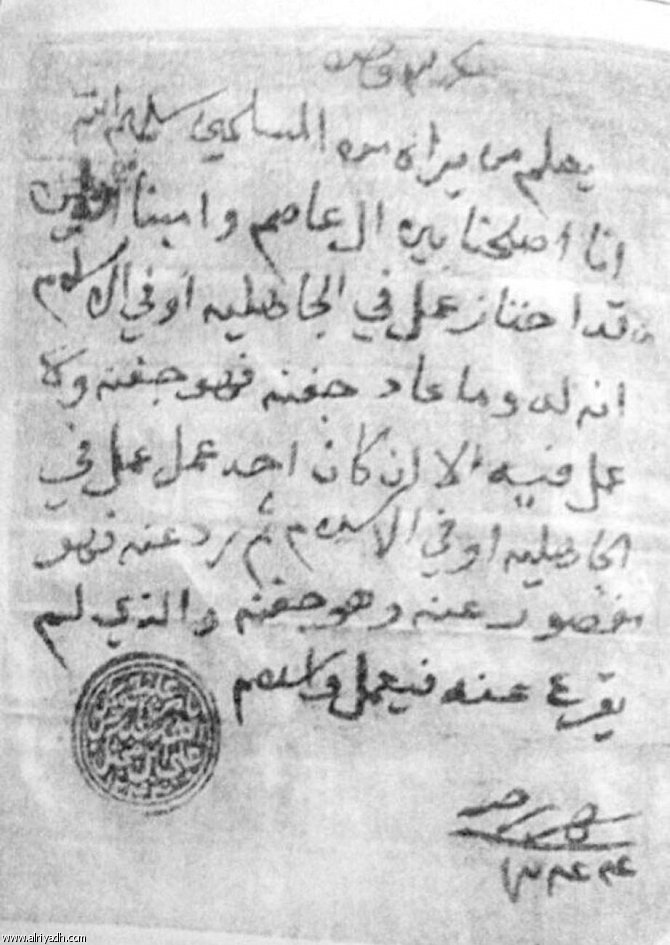 يعلم من يراه من المسلمين سلمهم الله
انا اصلحنا بين ال عاصم وامينا
قد احتاز عمل في الجاهليه او في الاسلام
انه له وما عاد جفنه فهو جفنه ولا
عمل فيه الا ان كان احد عمل عمل في
الجاهليه او في الاسلام ثم رد عنه فهو
مقصور عنه وهو جفنه والذي لم
يقرع عنه فيعمل والسلام
www.alriyadh.com